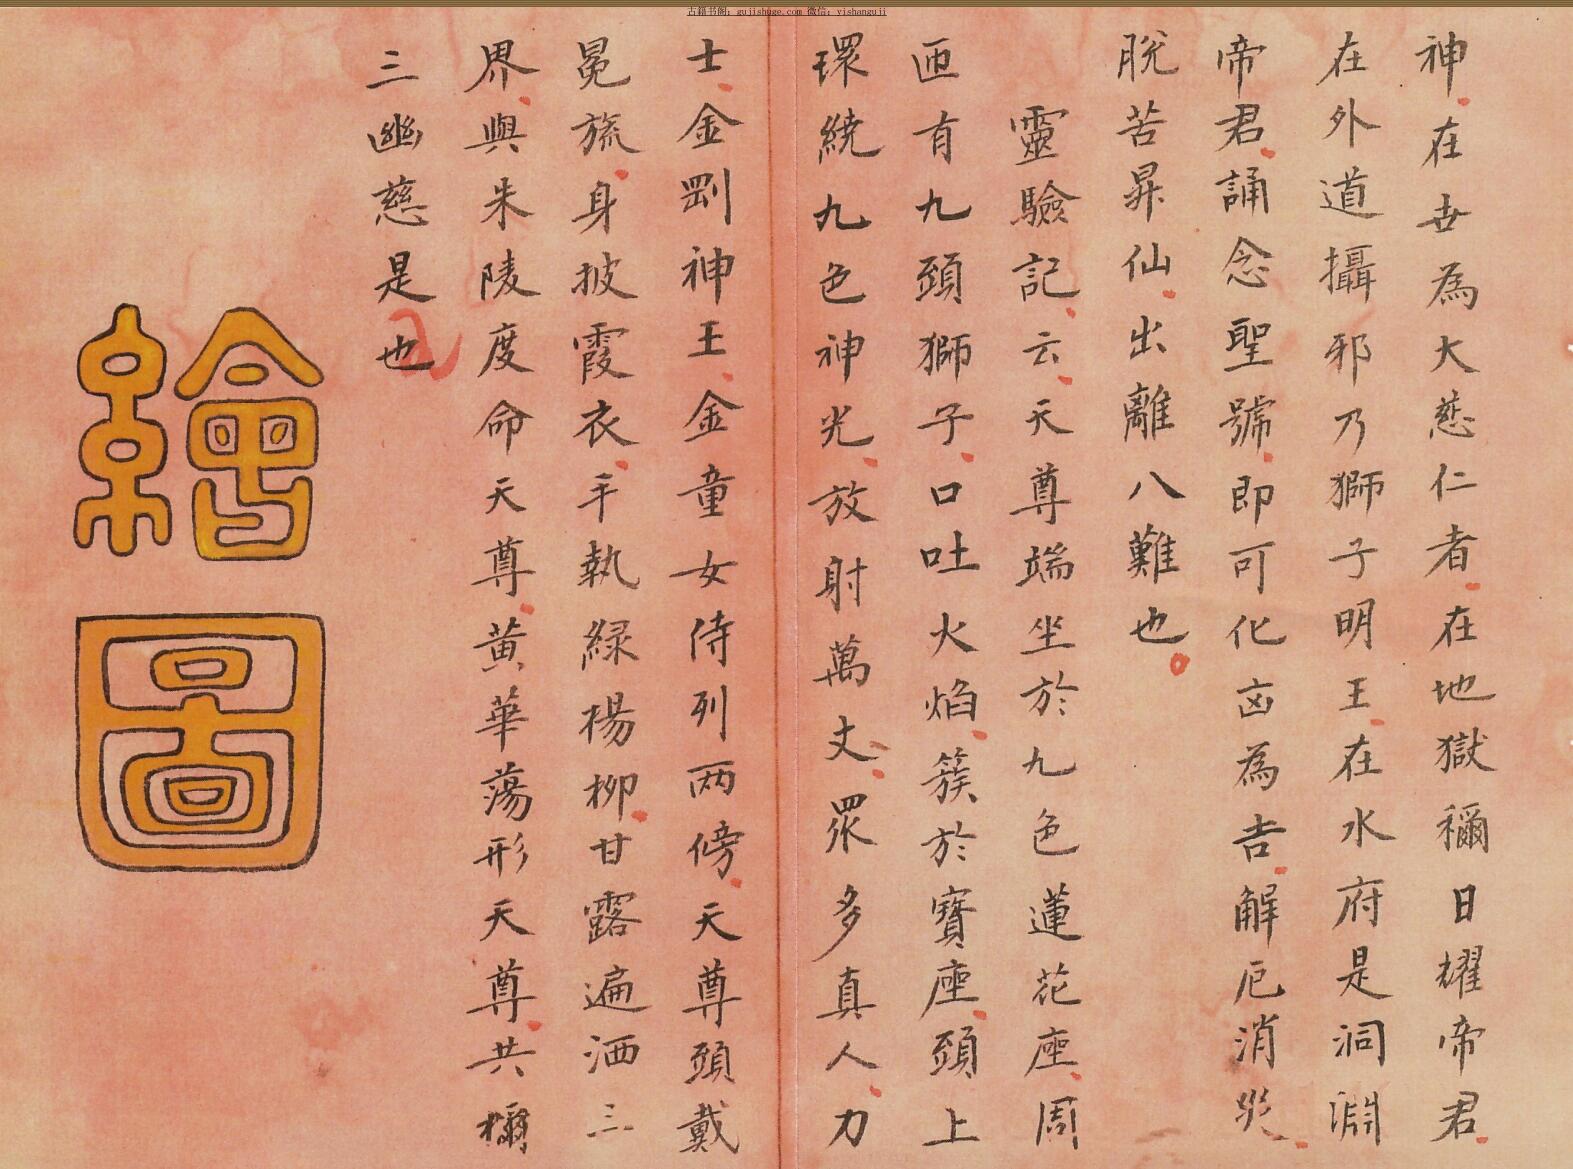 古籍书阁：gujishuge.com 微信：yishanguji
神在世為大慈仁者在地獄穪日耀帝君
在外道攝邪乃獅子明王在水府是洞淵
帝君誦念聖號即可化凶為吉解厄消災
脫苦昇仙出離八難也
靈驗記云天尊端坐於九色蓮花座周
匝有九頭獅子口吐火焰簇於寶座頭上
環繞九色神光放射萬丈眾多真人力
士金剛神王金童女侍列两傍天尊頭戴
冕旒身披霞衣手執緑楊柳甘露遍洒三
界與朱陵度命天尊黃華蕩形天尊共穪
三幽慈是也
繪圖